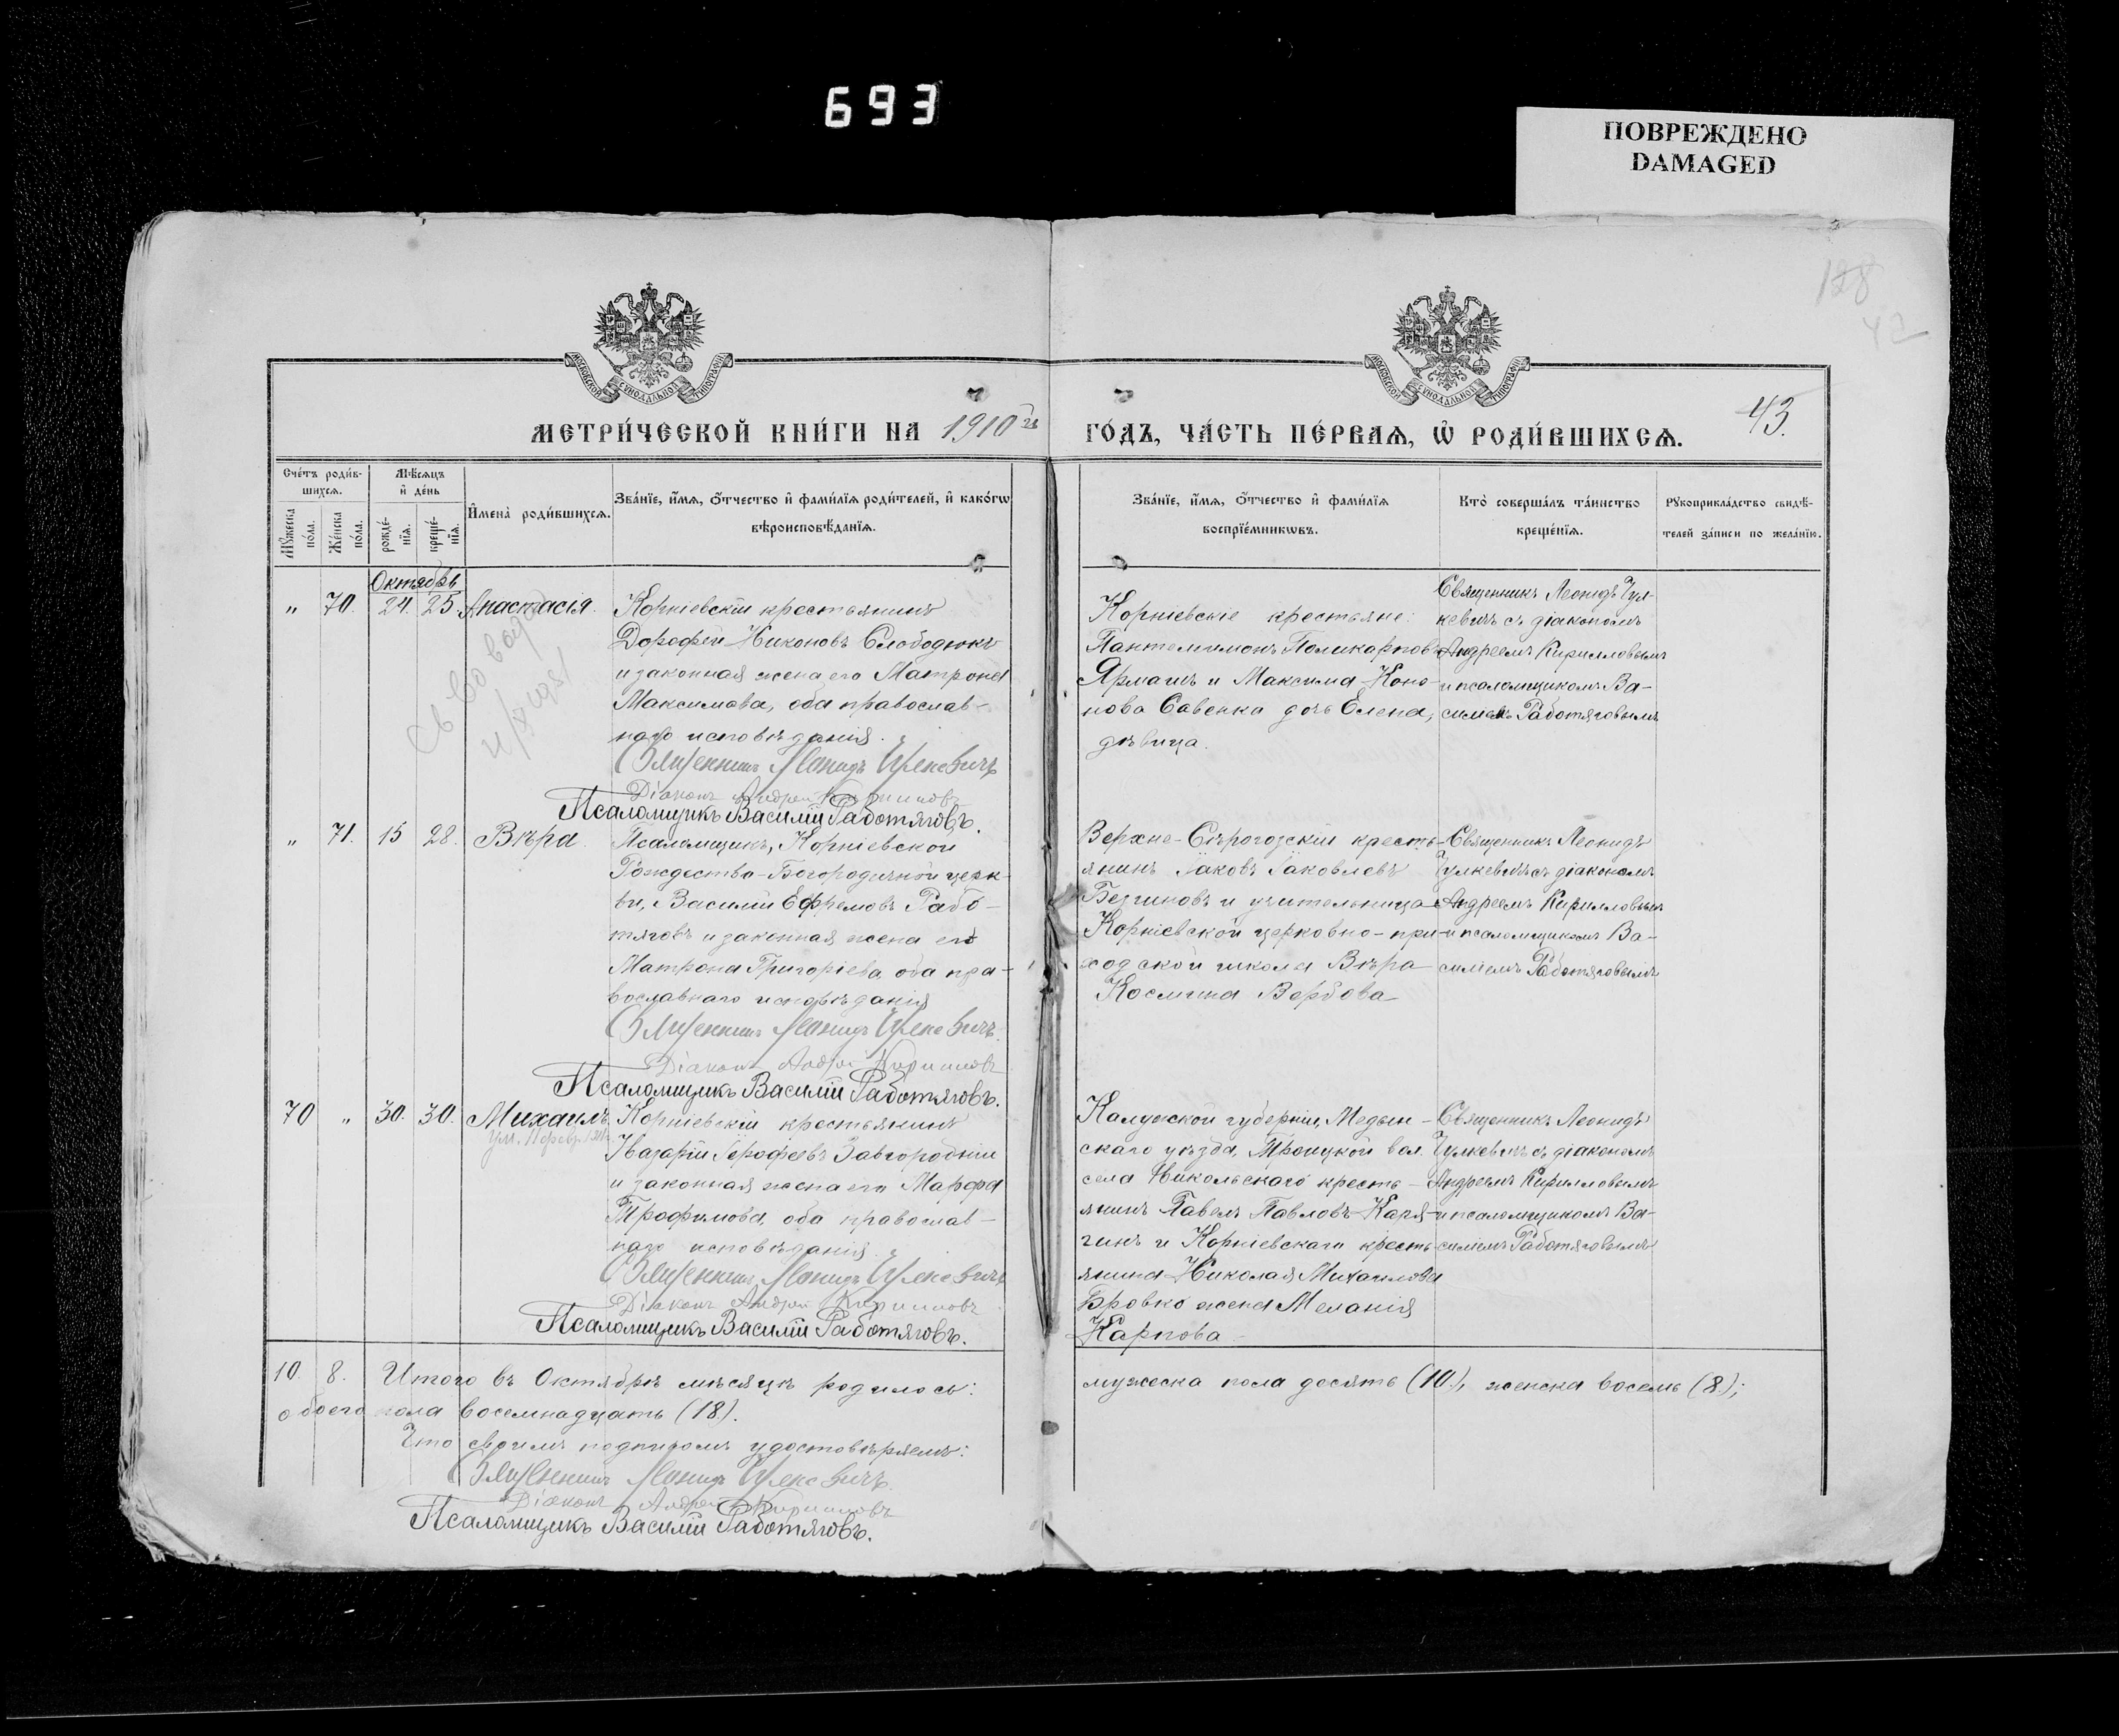 693
ПОВРЕЖДЕНО
DAMAGED
128
42
МОСКОВСКОЙ СѴНОДАЛЬНОЙ ТИПОГРАФІИ
МОСКОВСКОЙ СѴНОДАЛЬНОЙ ТИПОГРАФІИ
МЕТРИ́ЧЕСКОЙ КНИ́ГИ НА 1910 й
ГО́ДЪ, ЧА́СТЬ ПЕ́РВАѦ, Ѡ҆ РОДИ́ВШИХСѦ.
43.
Сче́тъ роди́в-
шихсѧ.
Мѣ́сѧцъ
и҆ де́нь
Мꙋ́жеска по́ла.
Же́нска по́ла.
рожде́-
нїѧ.
креще́-
нїѧ.
И҆мена̀ роди́вшихсѧ.
Зва́нїе, и҆́мѧ, ѻ҆́тчество и҆ фами́лїѧ роди́телей, и҆ како́гѡ
вѣроисповѣ́данїѧ.
Зва́нїе, и҆́мѧ, ѻ҆́тчество и҆ фами́лїѧ
воспрїе́мникѡвъ.
Кто̀ соверша́лъ та́инство
креще́нїѧ.
Рꙋкоприкла́дство свидѣ́-
телей за́писи по жела́нїю.
Октябрь
" 70. 24. 25. Анастасія.
Корніевскій крестьянинъ
Дорофей Никоновъ Слободюкъ
и законная жена его Матрона
Максимова, оба православ-
наго исповѣданія.
Священникъ Леонидъ Гулкевичъ
Діаконъ Андрей Кирилловъ
Псаломщикъ Василій Работяговъ.
Корніевскіе крестьяне:
Пантелимонъ Поликарповъ
Ярмашъ и Максима Коно-
нова Савенка дочь Елена,
дѣвица.
Священникъ Леонидъ Гул-
кевичъ съ діакономъ
Андреемъ Кирилловымъ
и псаломщикомъ Ва-
силіемъ Работяговымъ
" 71. 15 28. Вѣра.
Псаломщикъ, Корніевской
Рождество-Богородичной церк-
ви, Василій Ефремовъ Рабо-
тяговъ и законная жена его
Матрона Григоріева, оба пра-
вославнаго исповѣданія
Священникъ Леонидъ Гулкевичъ.
Діаконъ Андрей Кирилловъ
Псаломщикъ Василій Работяговъ.
Верхне-Сѣрогозскій кресть-
янинъ Іаковъ Іаковлевъ
Безгиновъ и учительница
Корніевской церковно-при-
ходской школы Вѣра
Космина Вербова
Священникъ Леонидъ
Гулкевичъ съ діакономъ
Андреемъ Кирилловымъ
и псаломщикомъ Ва-
силіемъ Работяговымъ
70 " 30. 30. Михаилъ.
Корніевскій крестьянинъ
Назарій Іерофеевъ Завгородній
и законная жена его Марфа
Трофимова, оба православ-
наго исповѣданія.
Священникъ Леонидъ Гулкевичъ
Діаконъ Андрей Кирилловъ
Псаломщикъ Василій Работяговъ.
Калужской губерніи, Медын-
скаго уѣзда, Троицкой вол.
села Никольскаго кресть-
янинъ Павелъ Павловъ Каря-
гинъ и Корніевскаго кресть
янина Николая Михаилова
Бровко жена Меланія
Карпова
Священникъ Леонидъ
Гулкевичъ съ діакономъ
Андреемъ Кирилловымъ
и псаломщикомъ Ва-
силіемъ Работяговымъ
10. 8. Итого въ Октябрѣ мѣсяцѣ родилось:
мужеска пола десять (10.), женска восемь (8.);
обоего пола восемнадцать (18.).
Что своимъ подписомъ удостовѣряемъ:
Священникъ Леонидъ Гулкевичъ.
Діаконъ Андрей Кирилловъ
Псаломщикъ Василій Работяговъ.